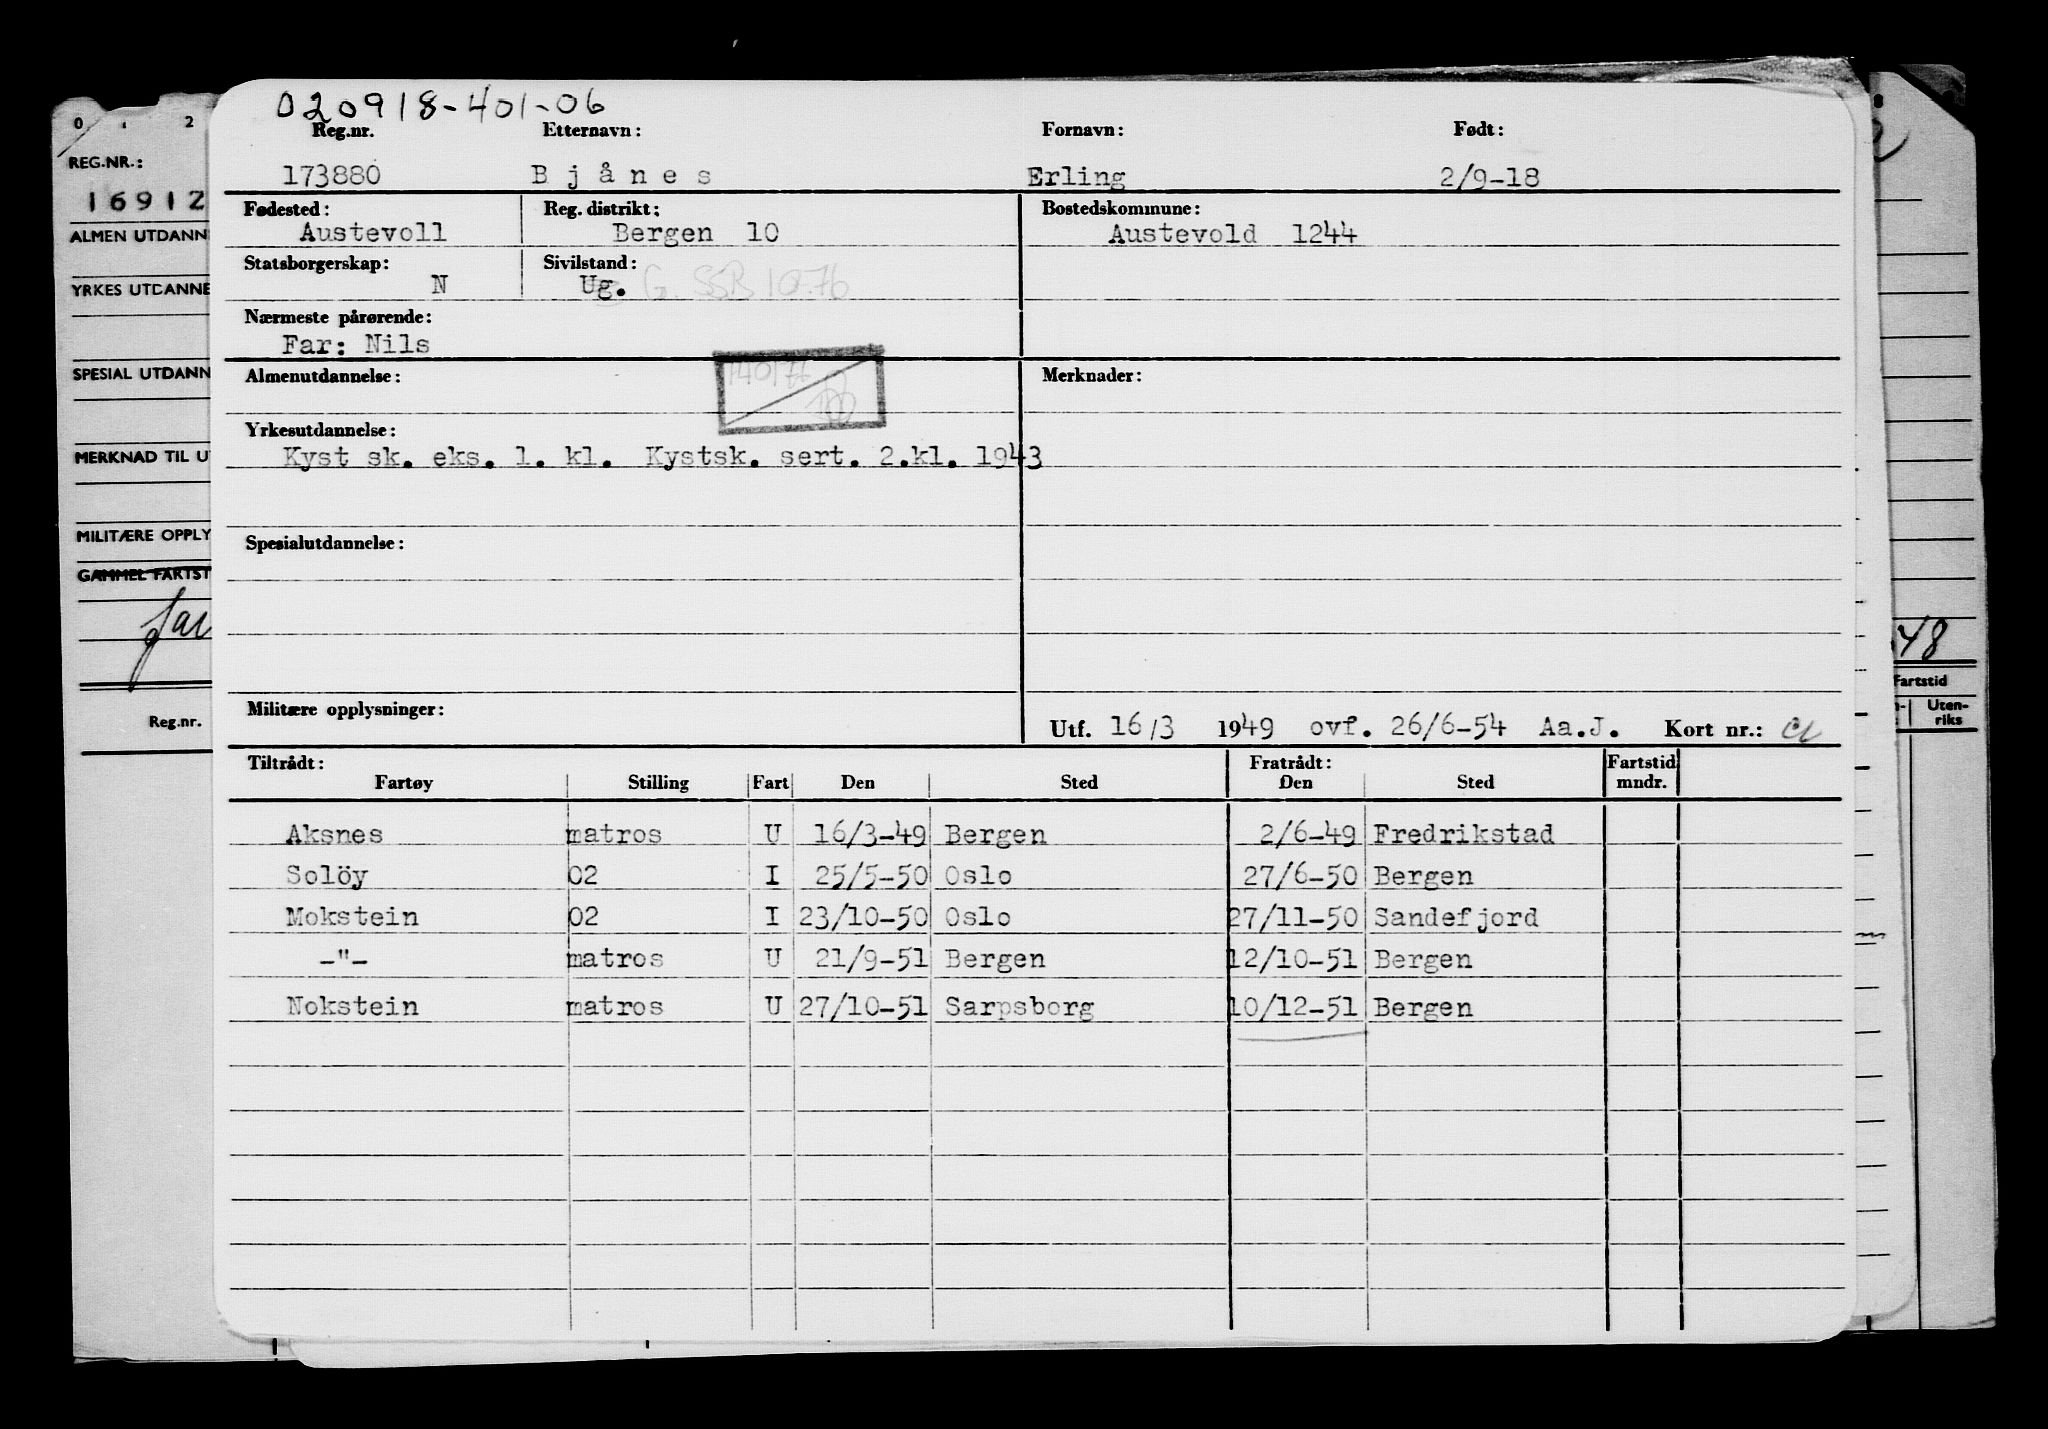 020918-401-06
Reg.nr. Etternavn: Fornavn: Født:
173880 Bjånes Erling 2/9-18
Fødested: Reg. distrikt: Bostedskommune:
Austevoll Bergen 10 Austevold 1244
Statsborgerskap: Sivilstand:
N Ug. G. SSB 10.76
Nærmeste pårørende:
Far: Nils
Almenutdannelse: Merknader:
Yrkesutdannelse:
Kyst sk. eks. 1. kl. Kystsk. sert. 2.kl. 1943
Spesialutdannelse:
Militære opplysninger:
Utf. 16/3 1949 ovf. 26/6-54 Aa.J. Kort nr.:
Tiltrådt: Fratrådt: Fartstid
Fartøy Stilling Fart Den Sted Den Sted mndr.
Aksnes matros U 16/3-49 Bergen 2/6-49 Fredrikstad
Solöy 02 I 25/5-50 Oslo 27/6-50 Bergen
Mokstein 02 I 23/10-50 Oslo 27/11-50 Sandefjord
-"- matros U 21/9-51 Bergen 12/10-51 Bergen
Nokstein matros U 27/10-51 Sarpsborg 10/12-51 Bergen
0 1 2
REG.NR.:
16912
ALMEN UTDANN
YRKES UTDANNE
SPESIAL UTDANN
MERKNAD TIL U
MILITÆRE OPPLY
GAMMEL FARTST
Reg.nr.
48
Fartstid
Uten-
riks